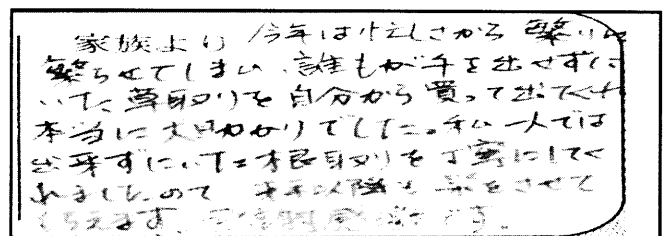 家族より 今年は忙しさから繁りに
繁らせてしまい、誰もが手を出せずに
いた草取りを自分から買って出てくれ
本当に大助かりでした。私一人では
出来ずにいた根取りを丁寧にしてく
れましたので 来年以降も楽をさせて
もらえます。